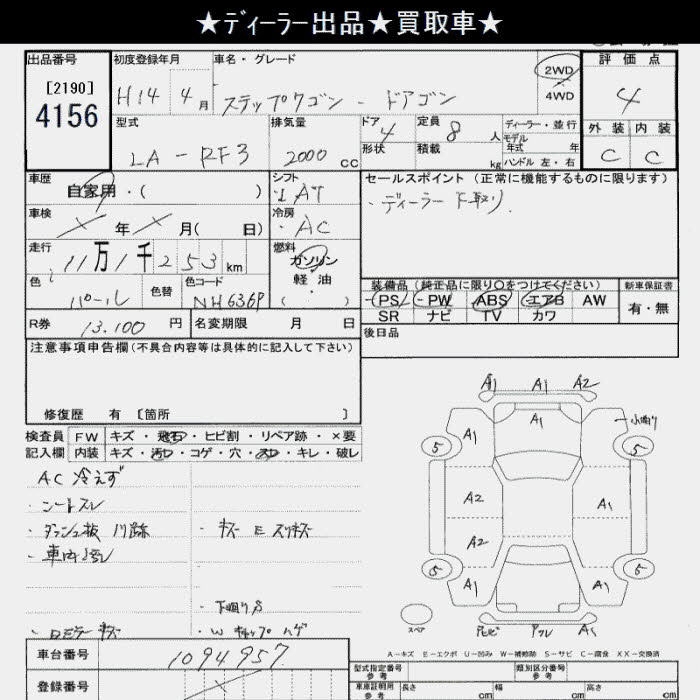 ★ディーラー出品★買取車★
出品番号 初度登録年月 車名・グレード 評価点
[2190]
4156
H14年 4月 ステップワゴン - ドアゴン 2WD 4WD 4
型式 排気量 ドア 定員 ディーラー・並行 外装 内装
LA-RF3 2000cc 4 8人 モデル年式 年 C C
形状 積載 kg ハンドル 左・右
車歴 シフト セールスポイント (正常に機能するものに限ります)
自家用・( ) AT ・ディーラー下取り
車検 冷房
×年×月( 日) ・AC
走行 燃料
11万1千253km ガソリン
軽油
( )
色 色替 色コード 装備品 (純正品に限り○をつけてください) 新車保証書
パール NH636P PS PW ABS エアB AW 有・無
SR ナビ TV カワ
R券 13,100円 名変期限 月 日 後日品
注意事項申告欄(不具合内容等は具体的に記入して下さい)
修復歴 有 〔箇所 〕
検査員 FW キズ・飛石・ヒビ割・リペア跡・×要
記入欄 内装 キズ・汚レ・コゲ・穴・スレ・キレ・破レ
AC 冷えず
・シートスレ
・ダッシュ板 ・キズ E スリキズ
・車内
・下廻りS
・ロミラーキズ ・Wキャップハゲ
A1 A1 A2
A1 A1 小曲り
5 5
A2 A1
A2
5 5
A1 A1
スペア A1
A-キズ E-エクボ U-凹み W-補修跡 S-サビ C-腐食 XX-交換済
車台番号 1094957
型式指定番号 参考 類別区分番号 参考
登録番号
車庫証明用 参考 長さ cm 幅 cm 高さ cm